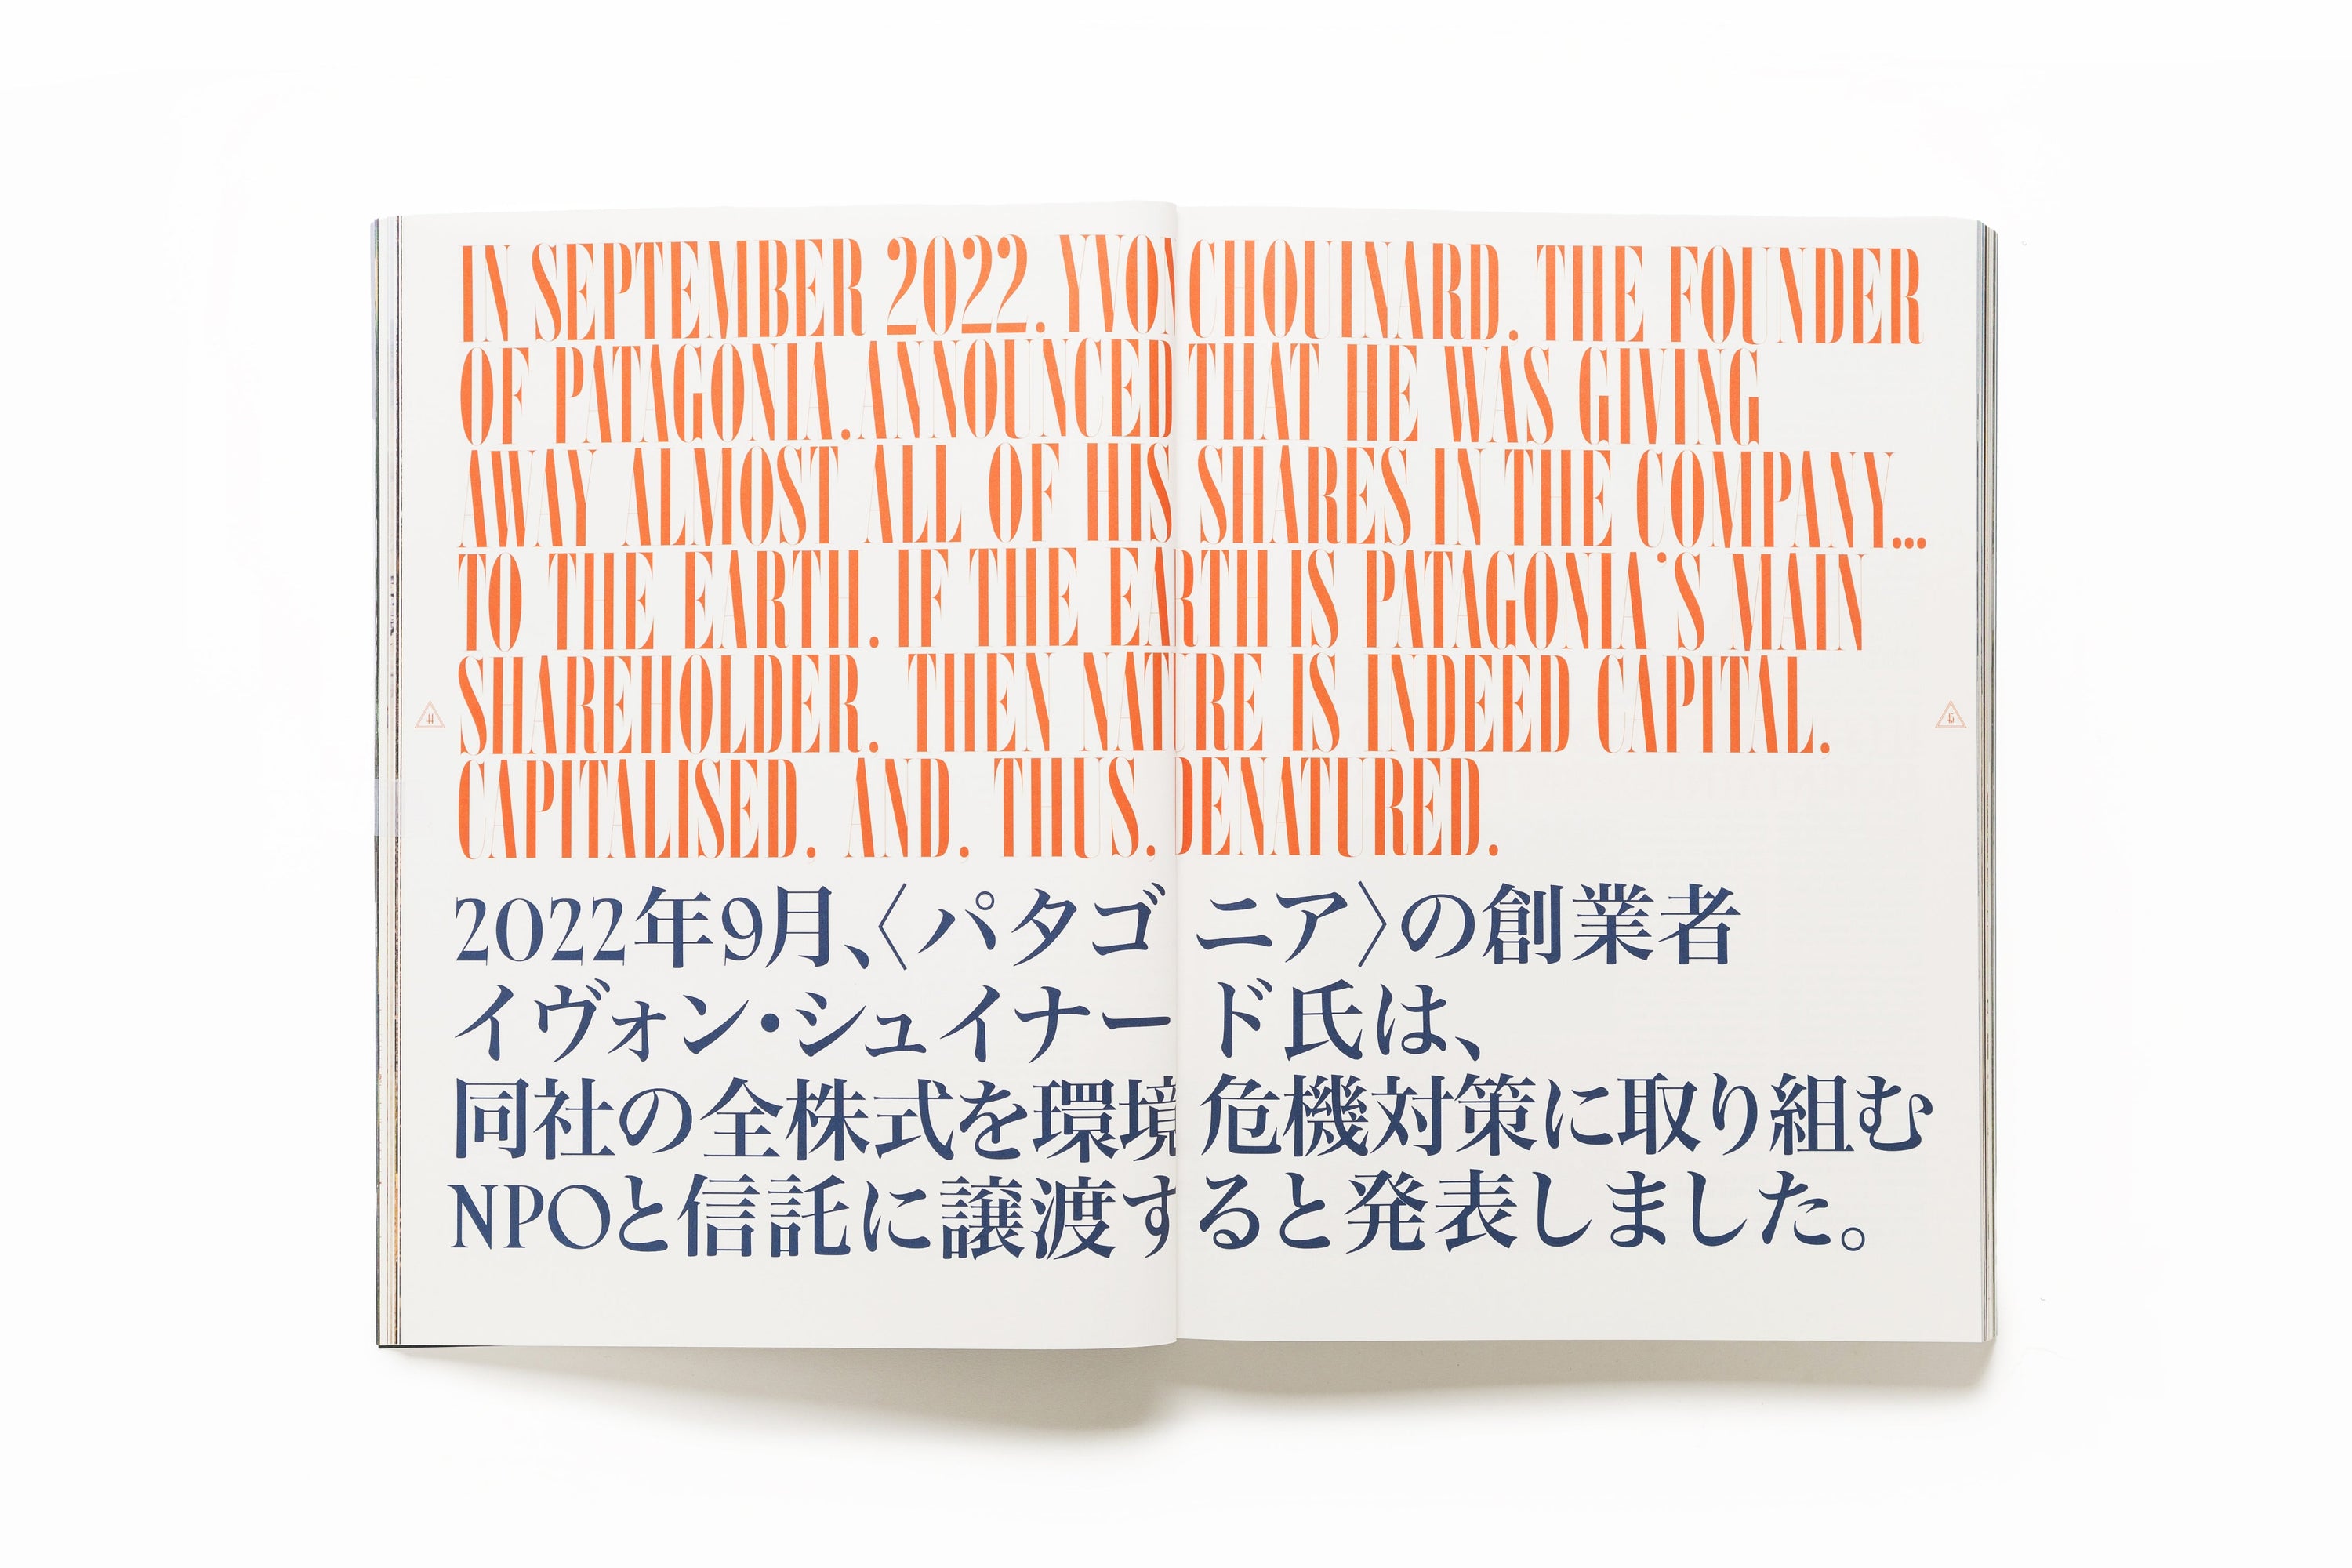 IN SEPTEMBER 2022. YVON CHOUINARD. THE FOUNDER
OF PATAGONIA. ANNOUNCED THAT HE WAS GIVING
AWAY ALMOST ALL OF HIS SHARES IN THE COMPANY...
TO THE EARTH. IF THE EARTH IS PATAGONIA'S MAIN
SHAREHOLDER. THEN NATURE IS INDEED CAPITAL.
CAPITALISED. AND. THUS. DENATURED.
2022年9月、〈パタゴニア〉の創業者
イヴォン・シュイナード氏は、
同社の全株式を環境危機対策に取り組む
NPOと信託に譲渡すると発表しました。
44
45